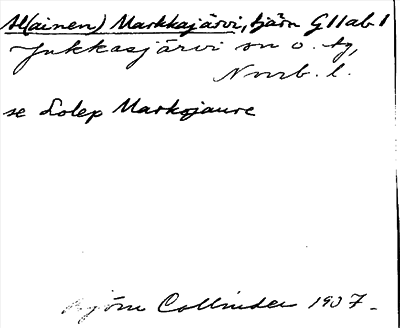 Al(ainen) Markkajärvi, tjärn G11ab1
Jukkasjärvi sn o. tg,
Norrb. l.
se Lolep Markojaure
Björn Collinder 1937.